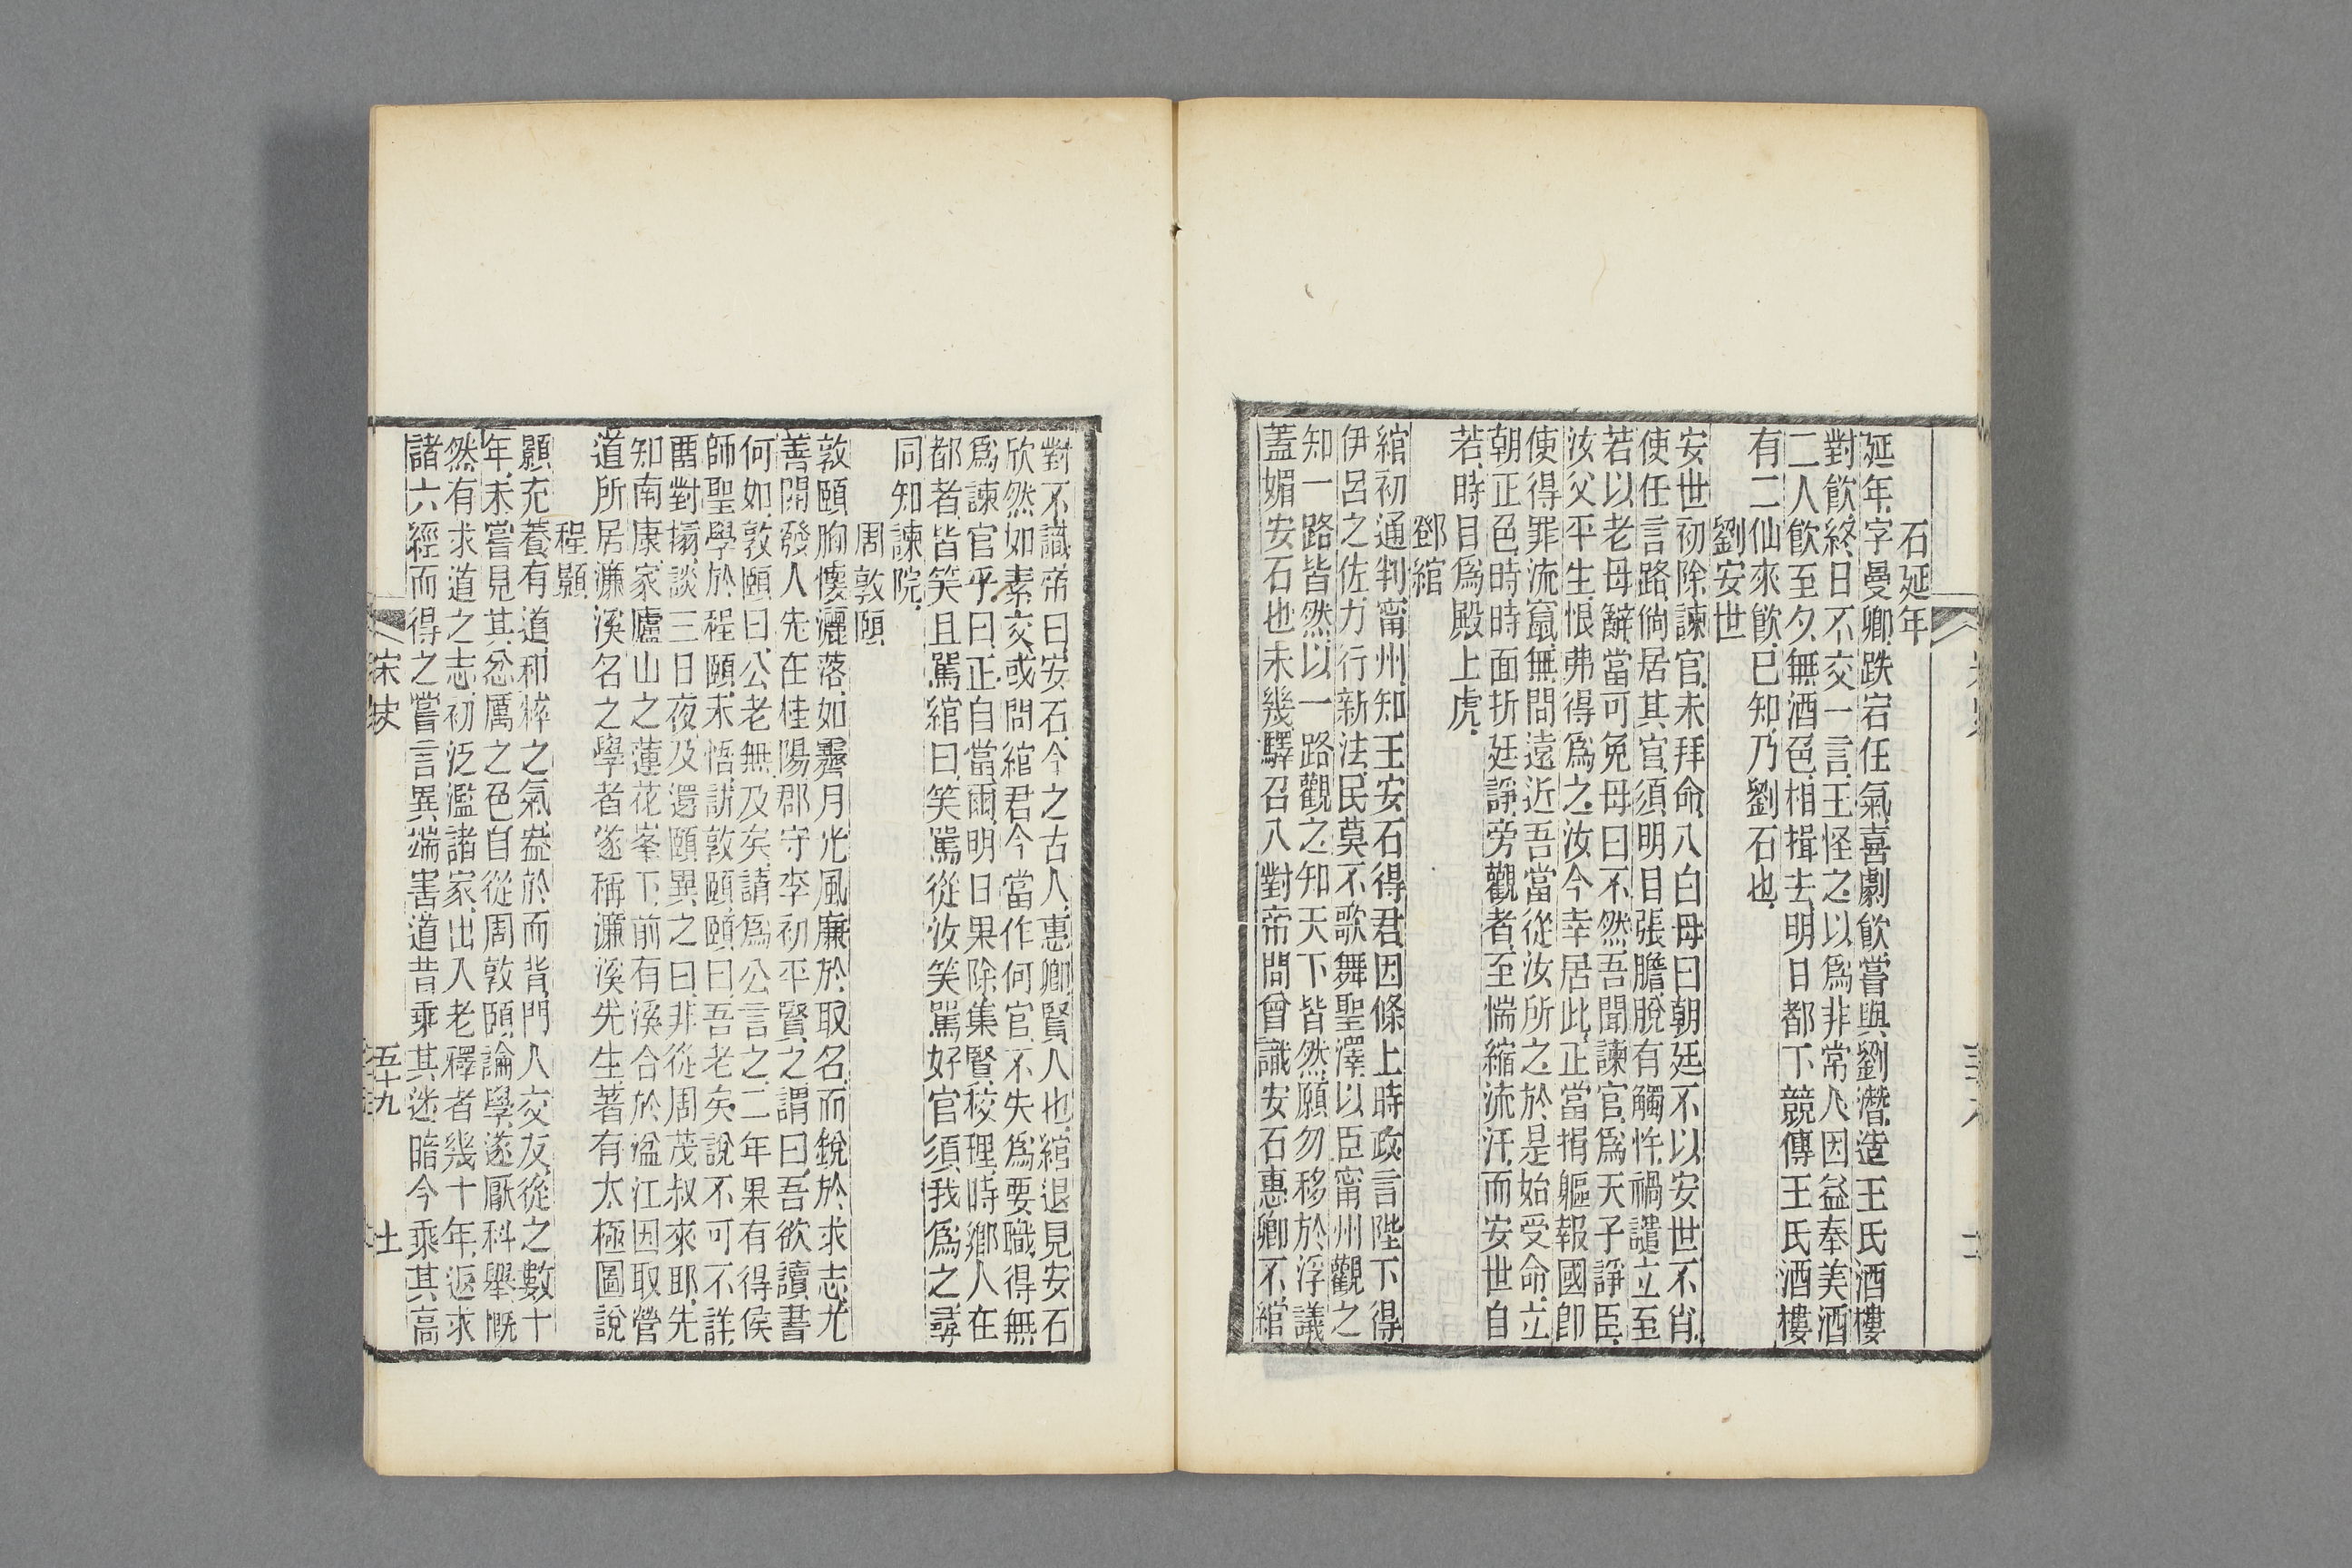 石延年
延年、字曼卿、跌宕任氣、喜劇飲、嘗與劉潛、造王氏酒樓
對飲、終日不交一言、王怪之、以爲非常人、因益奉美酒
二人飲至夕、無酒色、相揖去、明日都下競傳王氏酒樓
有二仙來飲、已知、乃劉石也、
劉安世
安世初除諫官、未拜命、入白母曰、朝廷不以安世不肖、
使任言路、倘居其官、須明目張膽、脫有觸忤、禍譴立至
若以老母辭、當可免、母曰、不然、吾聞諫官爲天子諍臣、
汝父平生、恨弗得爲之、汝今幸居此、正當捐軀報國、卽
使得罪流竄、無問遠近、吾當從汝所之、於是始受命、立
朝正色、時時面折廷諍、旁觀者、至惴縮流汗、而安世自
若、時目爲殿上虎、
鄧綰
綰初通判甯州、知王安石得君、因條上時政、言陛下得
伊呂之佐、力行新法、民莫不歌舞聖澤、以臣甯州觀之
知一路皆然、以一路觀之、知天下皆然、願勿移於浮議
蓋媚安石也、未幾、驛召入對、帝問曾識安石惠卿不、綰
對不識、帝曰、安石、今之古人、惠卿、賢人也、綰退見安石
欣然如素交、或問綰、君今當作何官、不失爲要職、得無
爲諫官乎、曰、正自當爾、明日果除集賢校理、時鄉人在
都者、皆笑且駡、綰曰、笑駡從汝笑駡、好官須我爲之、尋
同知諫院、
周敦頤
敦頤胸懷灑落、如霽月光風、廉於取名、而銳於求志、尤
善開發人、先在桂陽、郡守李初平賢之、謂曰、吾欲讀書
何如、敦頤曰、公老無及矣、請爲公言之、二年果有得、侯
師聖學於程頤、未悟、訪敦頤、頤曰、吾老矣、說不可不詳、
畱對榻、談三日夜、及還、頤異之曰、非從周茂叔來耶、先
知南康、家廬山之蓮花峯下、前有溪、合於湓江、因取營
道所居濂溪名之、學者遂稱濂溪先生、著有太極圖說
程顥
顥充養有道、和粹之氣、盎於而背、門人交友、從之數十
年、未嘗見其忿厲之色、自從周敦頤論學、遂厭科舉、慨
然有求道之志、初泛濫諸家、出入老釋者幾十年、返求
諸六經而得之、嘗言異端害道、昔乘其迷暗、今乘其高
宋史
五十九